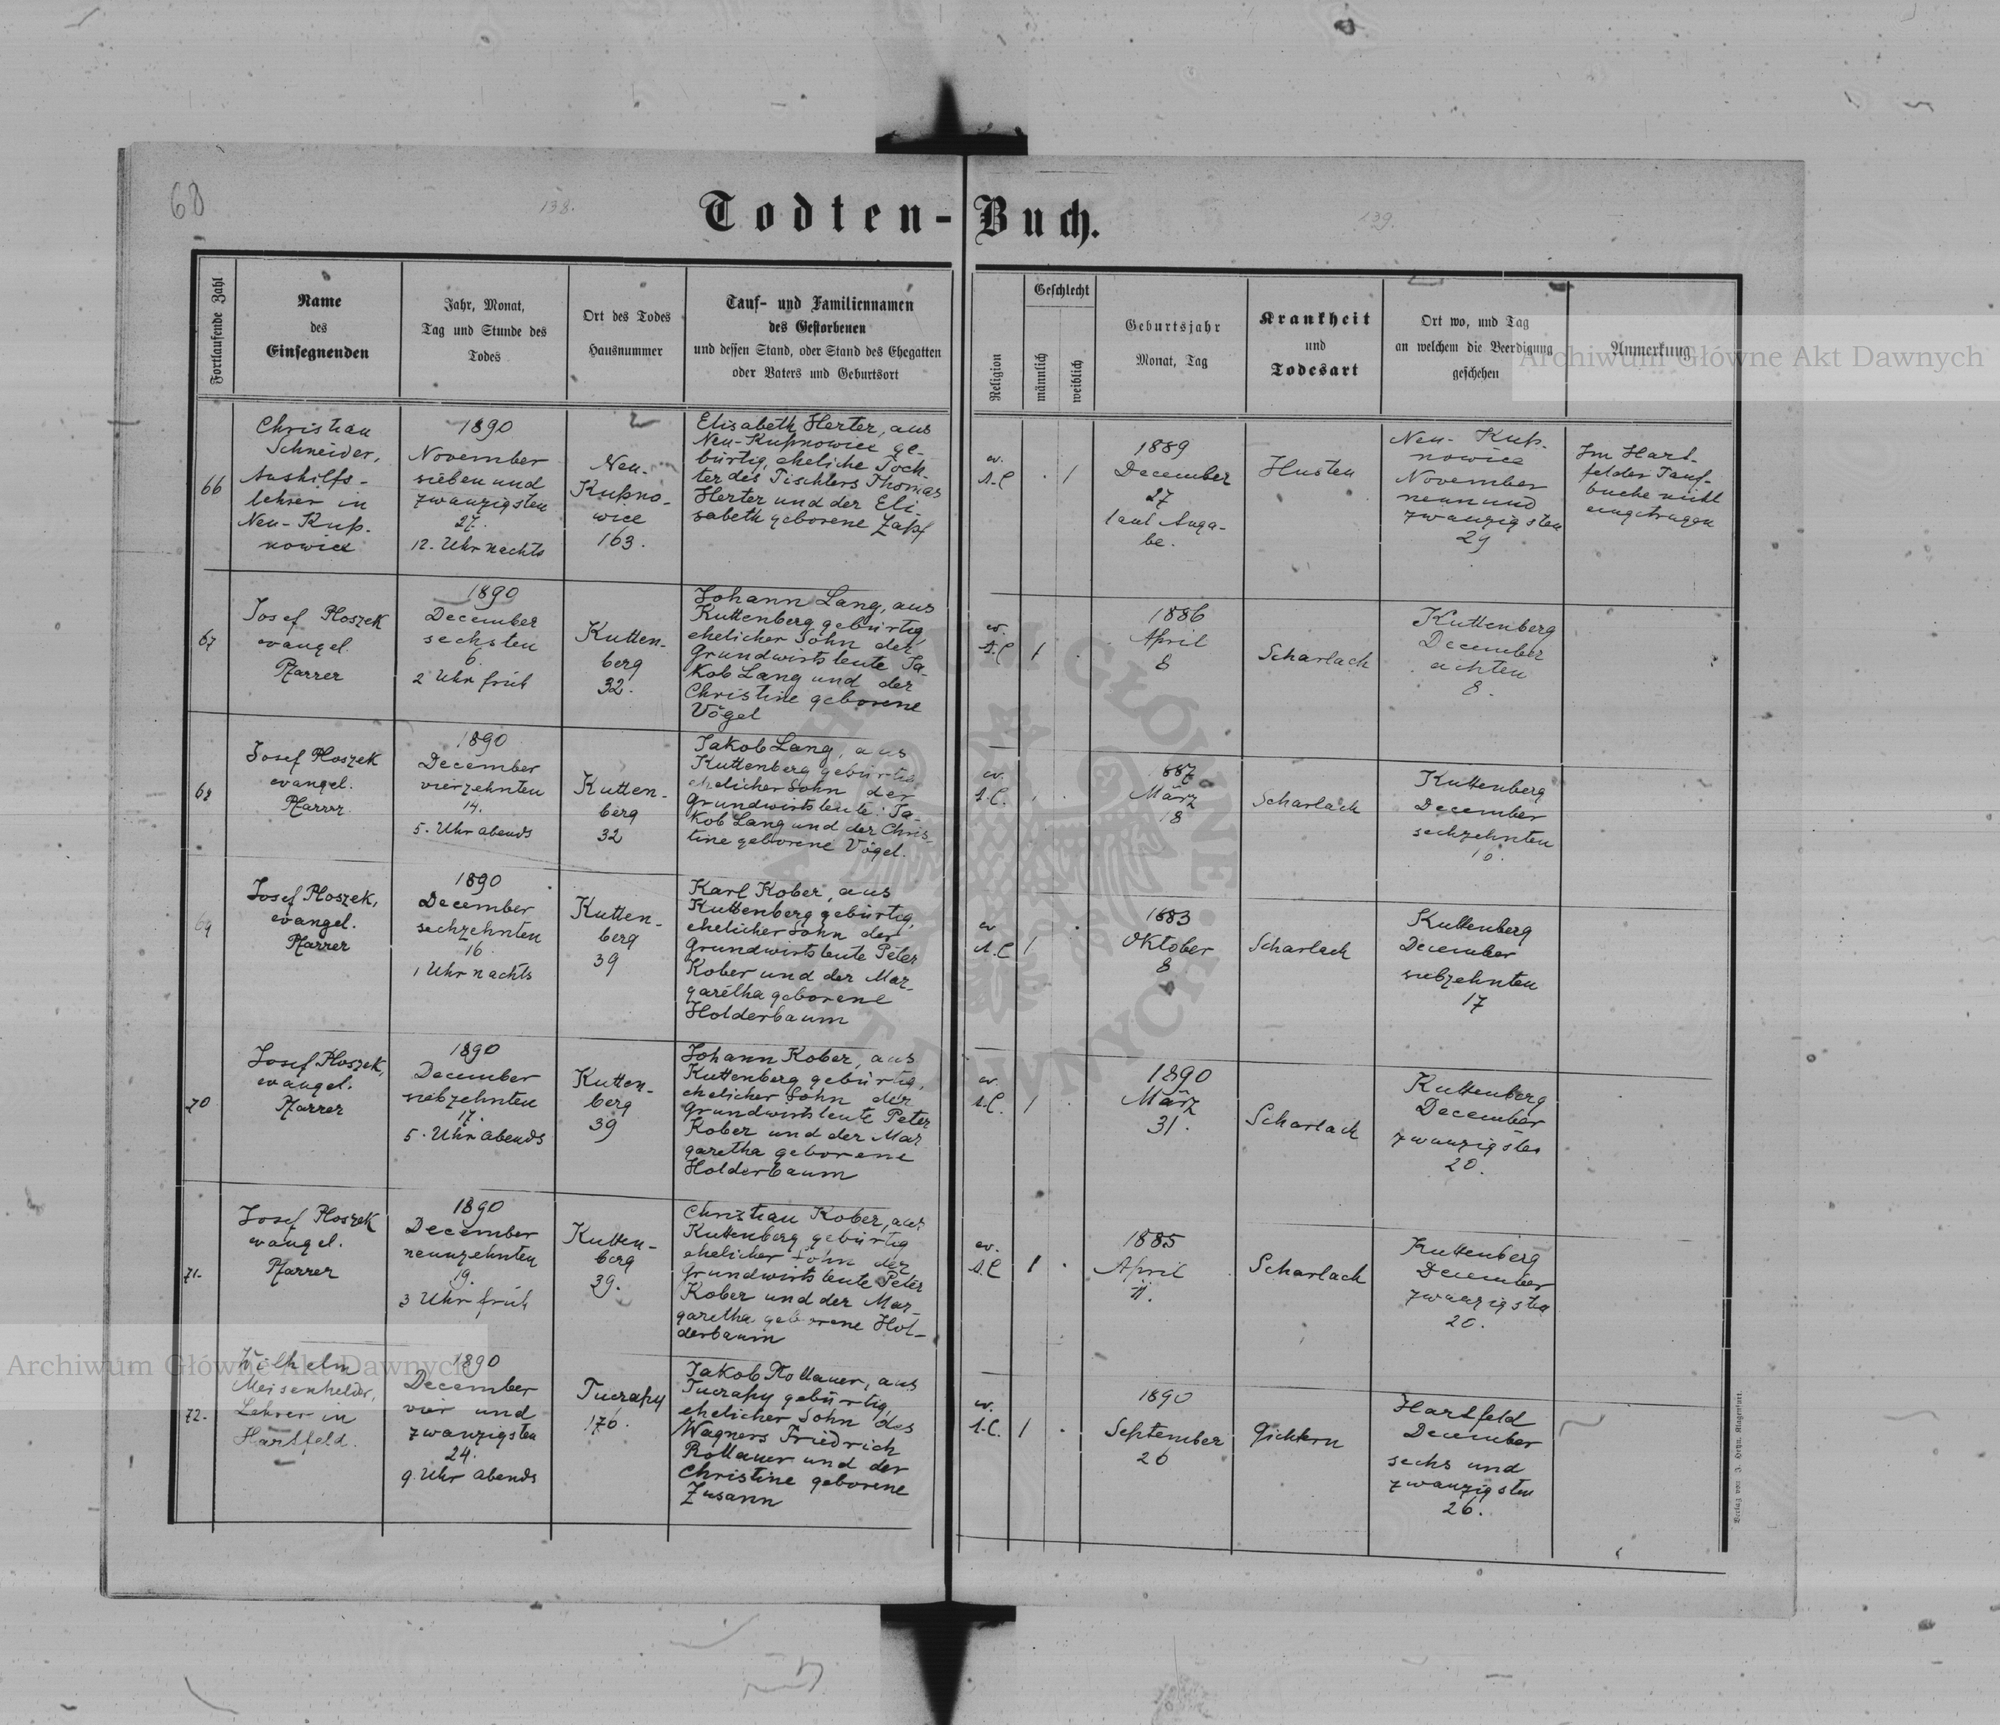 68
138.
139.
Todten-Buch.
Fortlaufende Zahl
Name
des
Einsegnenden
Jahr, Monat,
Tag und Stunde des
Todes
Ort des Todes
Hausnummer
Tauf- und Familiennamen
des Gestorbenen
und dessen Stand, oder Stand des Ehegatten
oder Vaters und Geburtsort
Religion
Geschlecht
männlich
weiblich
Geburtsjahr
Monat, Tag
Krankheit
und
Todesart
Ort wo, und Tag
an welchem die Beerdigung
geschehen
Anmerkung
66
Christian
Schneider,
Aushilfs-
lehrer in
Neu-Kup-
nowice
1890
November
sieben und
zwanzigsten
27.
12. Uhr nachts
Neu-
Kupno-
wice
163.
Elisabeth Herter, aus
Neu-Kupnowice ge-
bürtig, eheliche Toch
ter des Tischlers Thomas
Herter und der Eli-
sabeth geborene Zapf
ev.
A.C
1
1889
December
27
laut Anga-
be.
Husten
Neu-Kup-
nowice
November
neun und
zwanzigsten
29
Im Hart-
felder Tauf-
buche nicht
eingetragen
67
Josef Ploszek
evangel.
Pfarrer
1890
December
sechsten
6.
2 Uhr früh
Kutten-
berg
32.
Johann Lang, aus
Kuttenberg gebürtig,
ehelicher Sohn der
Grundwirtsleute Ja-
kob Lang und der
Christine geborene
Vögel
ev.
A.C
1
1886
April
8
Scharlach
Kuttenberg
December
achten
8.
68
Josef Ploszek
evangel.
Pfarrer
1890
December
vierzehnten
14.
5. Uhr abends
Kutten-
berg
32
Jakob Lang, aus
Kuttenberg gebürtig
ehelicher Sohn der
Grundwirtsleute: Ja-
kob Lang und der Chris-
tine geborene Vögel.
ev.
A.C.
März
18
Scharlach
Kuttenberg
December
sechzehnten
16.
69
Josef Ploszek,
evangel.
Pfarrer
1890
December
sechzehnten
16
1 Uhr nachts
Kutten-
berg
39
Karl Kober, aus
Kuttenberg gebürtig,
ehelicher Sohn der
Grundwirtsleute Peter
Kober und der Mar-
garetha geborene
Holderbaum
ev
A.C
1
1883
Oktober
8
Scharlach
Kuttenberg
December
siebzehnten
17
70
Josef Ploszek,
evangel.
Pfarrer
1890
December
siebzehnten
17.
5. Uhr abends
Kutten-
berg
39
Johann Kober, aus
Kuttenberg gebürtig,
ehelicher Sohn der
Grundwirtsleute Peter
Kober und der Mar
garetha geborene
Holderbaum
ev.
A.C.
1
1890
März
31.
Scharlach
Kuttenberg
December
zwanzigsten
20.
71.
Josef Ploszek
evangel.
Pfarrer
1890
December
neunzehnten
19.
3 Uhr früh
Kutten-
berg
39.
Christian Kober, aus
Kuttenberg gebürtig
ehelicher Sohn der
Grundwirtsleute Peter
Kober und der Mar-
garetha geborene Hol-
derbaum
ev.
A.C
1
1885
April
11.
Scharlach
Kuttenberg
December
zwanzigsten
20.
72.
Wilhelm
Meisenhelder,
Lehrer in
Hartfeld.
1890
December
vier und
zwanzigsten
24.
9. Uhr abends
Tucrapy
176.
Jakob Rollauer, aus
Tucrapy gebürtig,
ehelicher Sohn des
Wagners Friedrich
Rollauer und der
Christine geborene
Zusann
ev.
A.C.
1
1890
September
26
Gichtern
Hartfeld
December
sechs und
zwanzigsten
26.
Archiwum Główne Akt Dawnych
Archiwum Główne Akt Dawnych